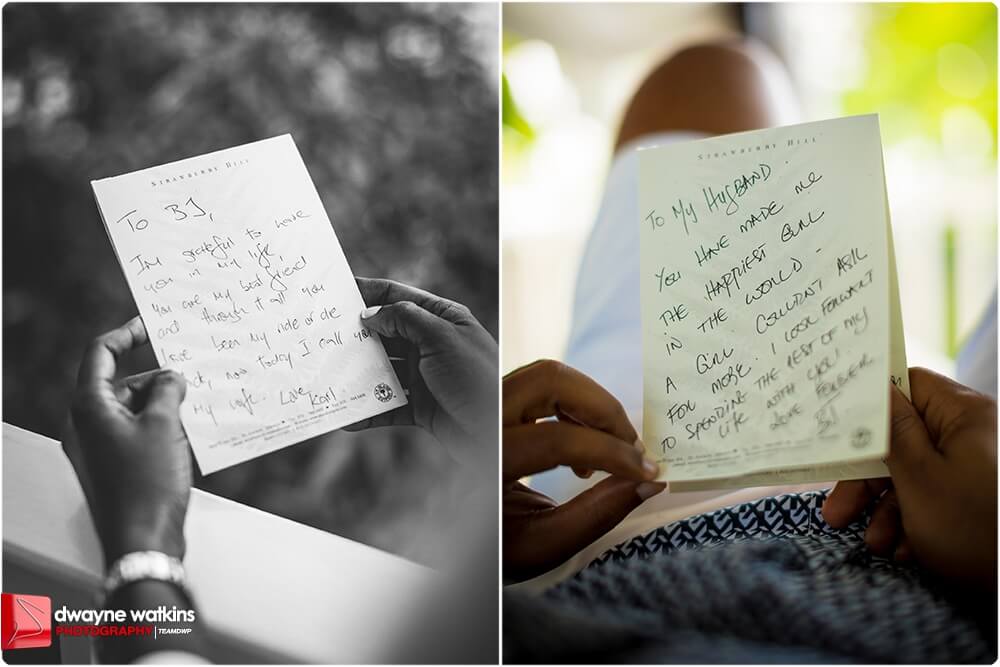 STRAWBERRY HILL
TO BJ,
Im grateful to have
you in my life,
You are my best friend
and through it all you
have been my ride or die
now today I call you
My wife. Love Karl
STRAWBERRY HILL
To My HUSBAND.
YOU HAVE MADE me
THE HAPPIEST GIRL
IN THE WORLD -
A GIRL COULDNT ASK
FOR MORE. I LOOK FORWARD
TO SPENDING THE REST OF MY
LIFE WITH YOU!
LOVE FOREVER
BJ
dwayne watkins
PHOTOGRAPHY | TEAMDWP